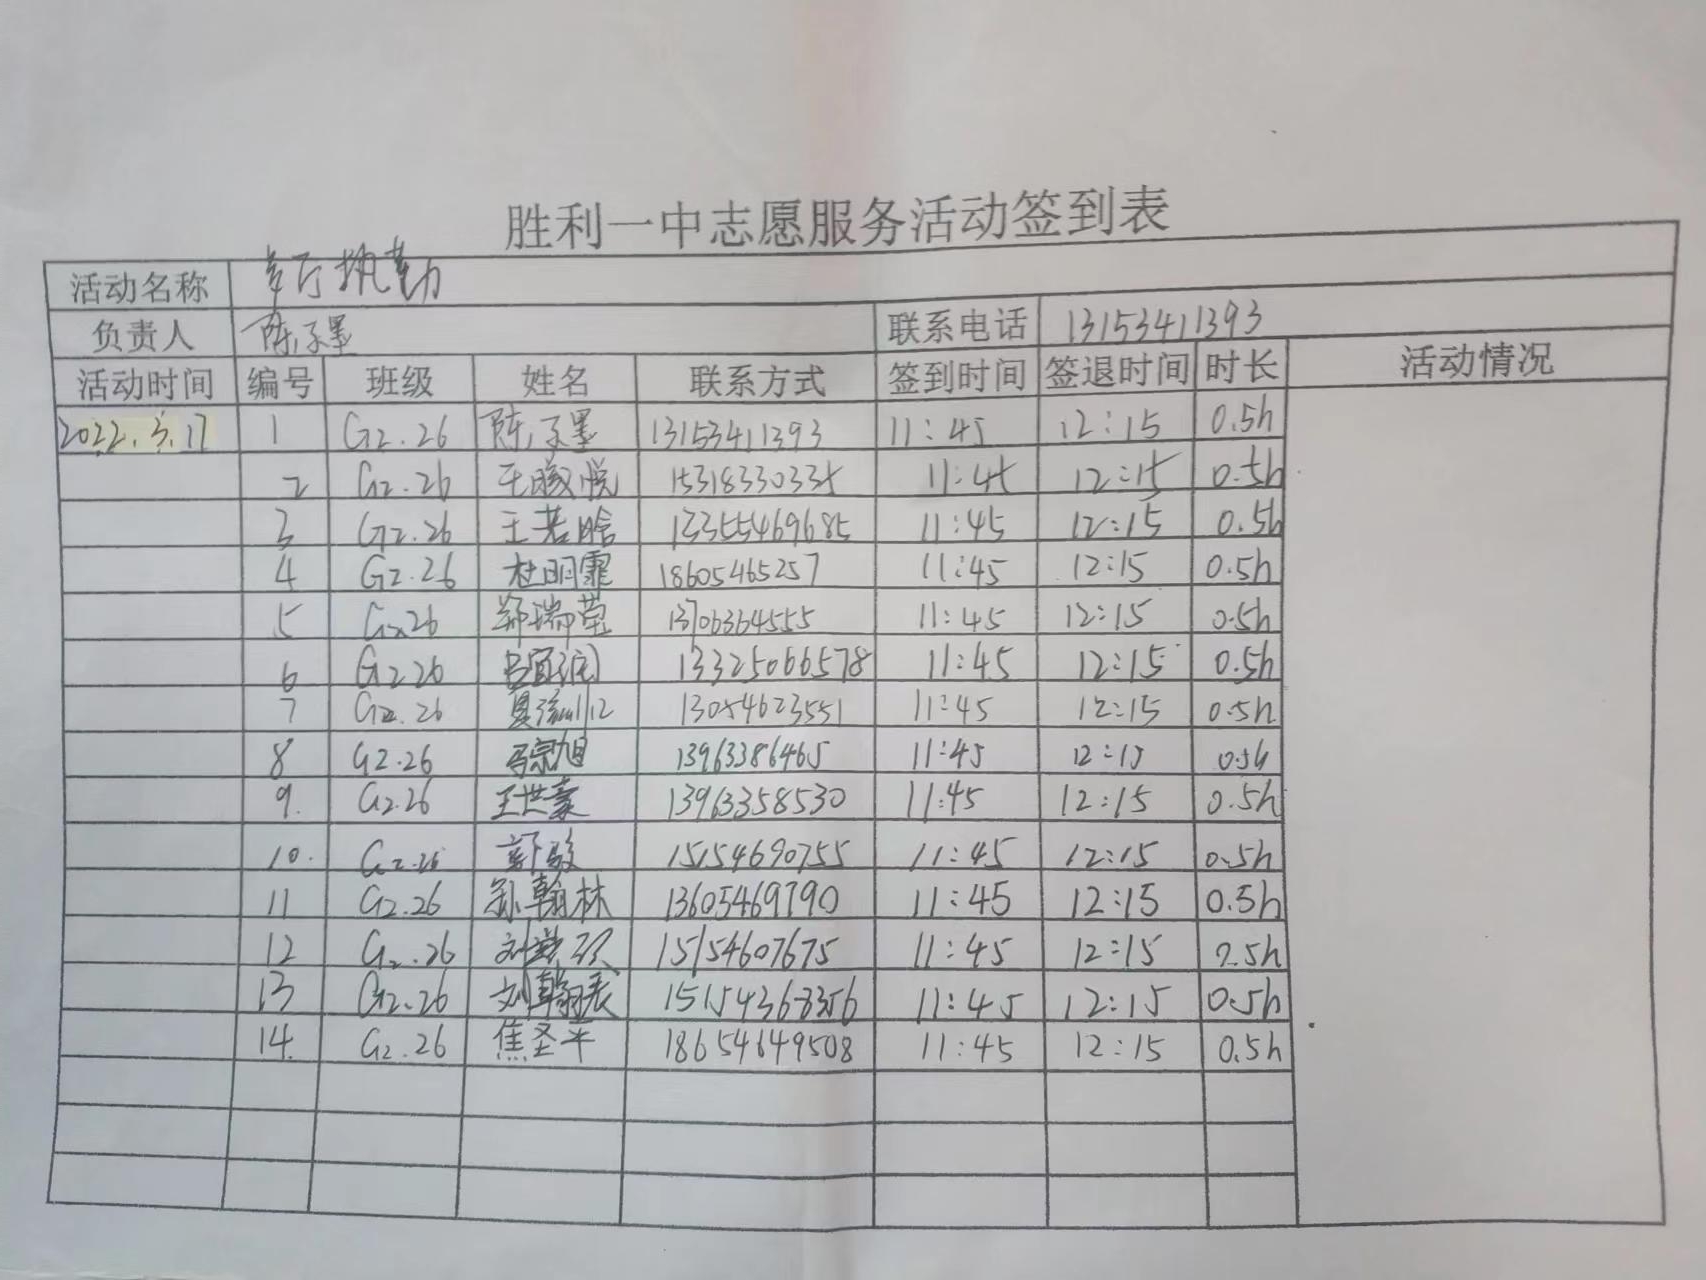 胜利一中志愿服务活动签到表
活动名称 餐厅执勤
负责人 陈子墨 联系电话 13153411393
活动时间 编号 班级 姓名 联系方式 签到时间 签退时间 时长 活动情况
2022.3.17 1 G2.26 陈子墨 13153411393 11:45 12:15 0.5h
2 G2.26 王悦 15318330335 11:45 12:15 0.5h
3 G2.26 王若晗 13355469685 11:45 12:15 0.5h
4 G2.26 杜明霏 18605465257 11:45 12:15 0.5h
5 G2.26 郑瑞莹 13706364555 11:45 12:15 0.5h
6 G2.26 吕宜润 13325066578 11:45 12:15 0.5h
7 G2.26 夏 13054623551 11:45 12:15 0.5h
8 G2.26 冯宗旭 13963386465 11:45 12:15 0.5h
9. G2.26 王世豪 13963358530 11:45 12:15 0.5h
10. G2.26 15154690755 11:45 12:15 0.5h
11 G2.26 孙翰林 13605469790 11:45 12:15 0.5h
12 G2.26 刘 15154607675 11:45 12:15 0.5h
13 G2.26 刘翰 15154368356 11:45 12:15 0.5h
14. G2.26 焦圣平 18654649508 11:45 12:15 0.5h